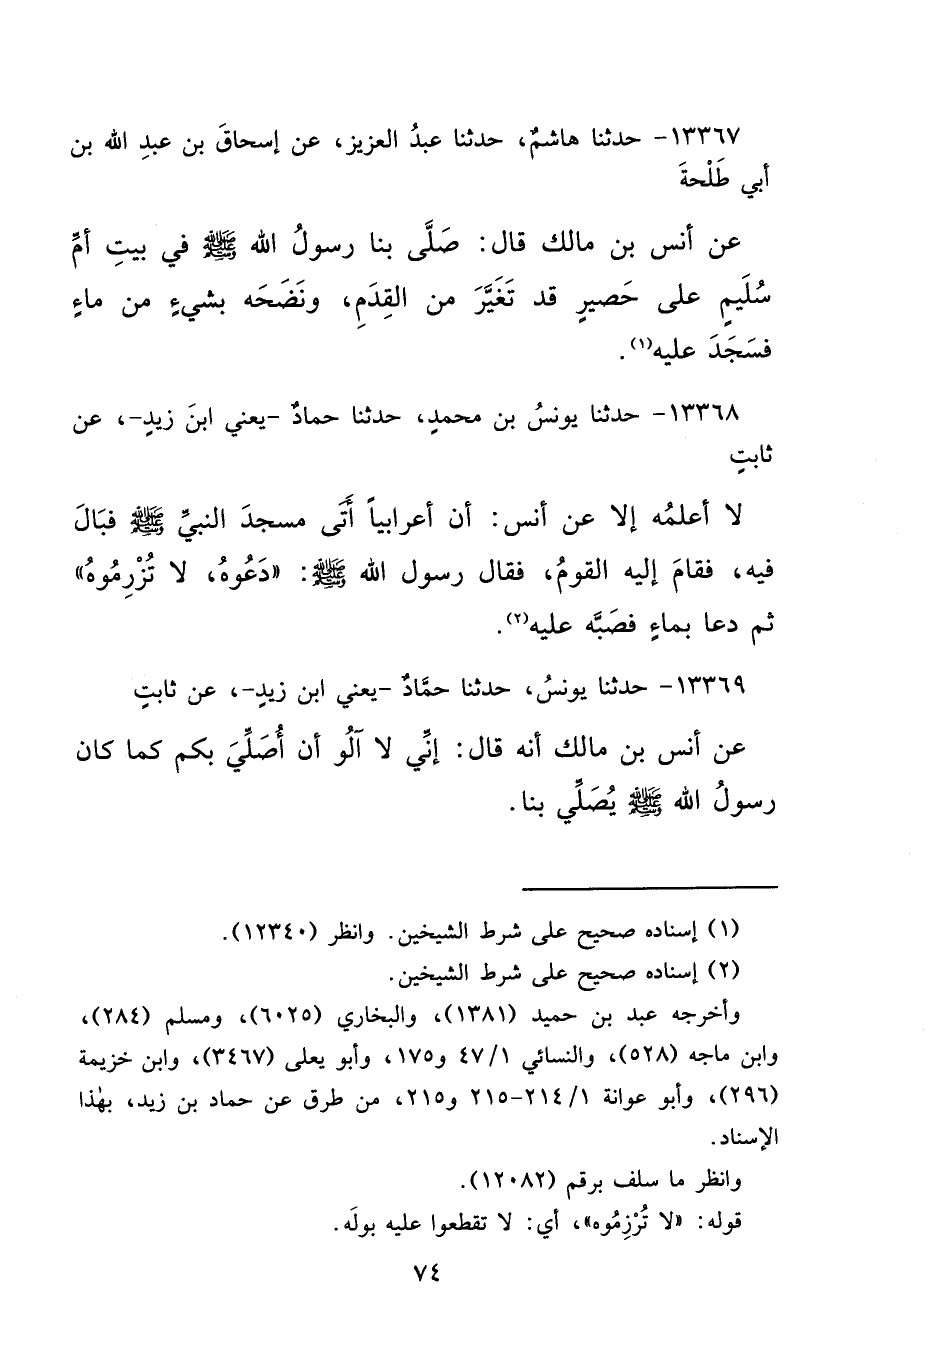 ١٣٣٦٧- حدثنا هاشمٌ، حدثنا عبدُ العزيز، عن إسحاقَ بن عبدِ الله بن
أبي طَلْحةَ
عن أنس بن مالك قال: صَلَّى بنا رسولُ الله ﷺ في بيتِ أمِّ
سُلَيمٍ على حَصيرٍ قد تَغَيَّرَ من القِدَمِ، ونَضَحَه بشيءٍ من ماءٍ
فسَجَدَ عليه(١).
١٣٣٦٨- حدثنا يونسُ بن محمدٍ، حدثنا حمادٌ -يعني ابنَ زيدٍ-، عن
ثابتٍ
لا أعلمُه إلا عن أنس: أن أعرابياً أَتَى مسجدَ النبيِّ ﷺ فبَالَ
فيه، فقامَ إليه القومُ، فقال رسول الله ﷺ: «دَعُوهُ، لا تُزْرِمُوهُ»
ثم دعا بماءٍ فصَبَّه عليه(٢).
١٣٣٦٩- حدثنا يونسُ، حدثنا حمَّادٌ -يعني ابن زيدٍ-، عن ثابتٍ
عن أنس بن مالك أنه قال: إنِّي لا آلُو أن أُصَلِّيَ بكم كما كان
رسولُ الله ﷺ يُصَلِّي بنا.
(١) إسناده صحيح على شرط الشيخين. وانظر (١٢٣٤٠).
(٢) إسناده صحيح على شرط الشيخين.
وأخرجه عبد بن حميد (١٣٨١)، والبخاري (٦٠٢٥)، ومسلم (٢٨٤)،
وابن ماجه (٥٢٨)، والنسائي ٤٧/١ و١٧٥، وأبو يعلى (٣٤٦٧)، وابن خزيمة
(٢٩٦)، وأبو عوانة ٢١٤/١-٢١٥ و٢١٥، من طرق عن حماد بن زيد، بهٰذا
الإسناد.
وانظر ما سلف برقم (١٢٠٨٢).
قوله: «لا تُرْزِمُوه»، أي: لا تقطعوا عليه بولَه.
٧٤